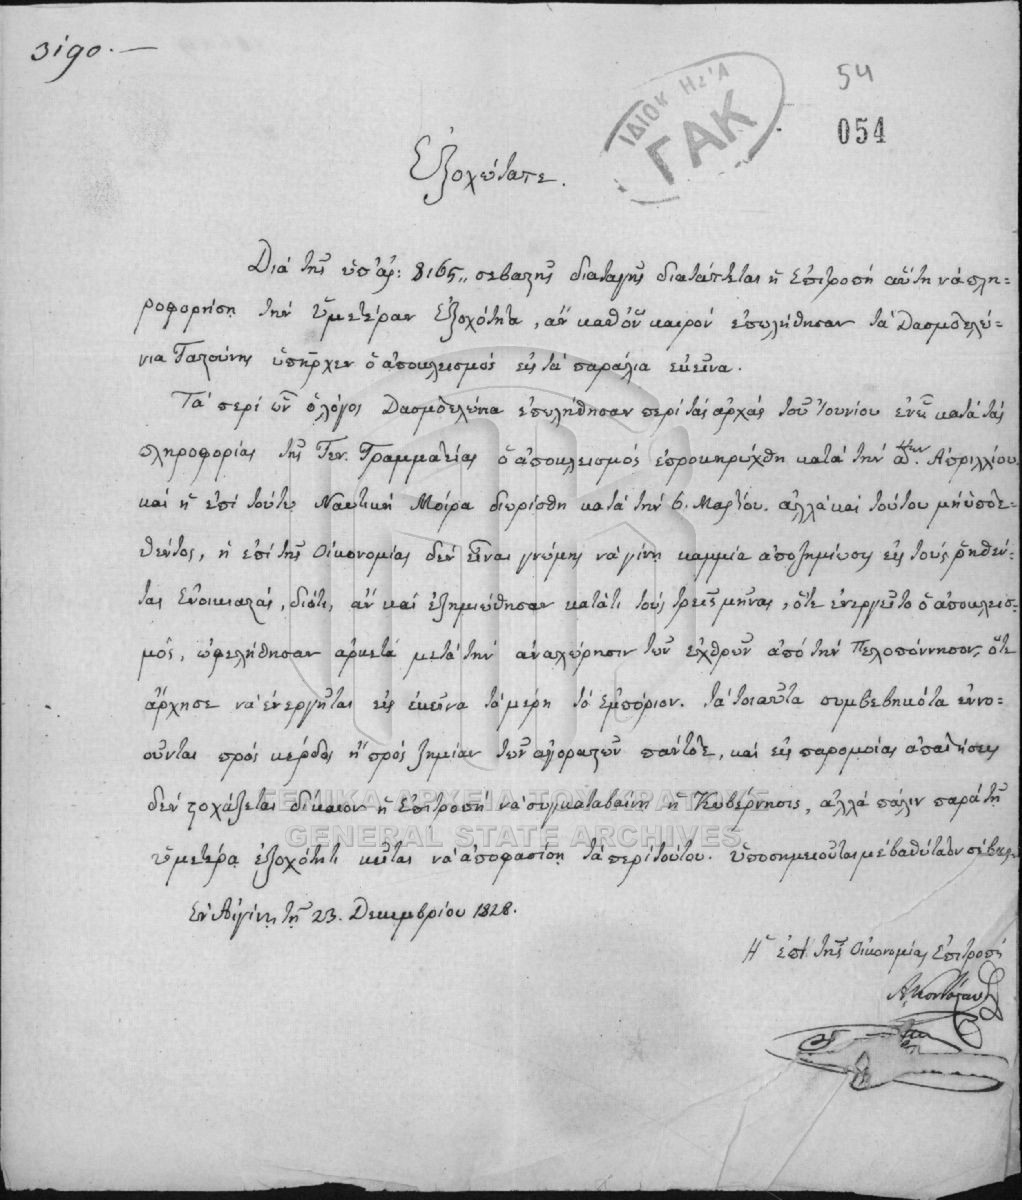 3190.
54
ΙΔΙΟΚ Η Σ'Α
ΓΑΚ
054
Ἐξοχώτατε.
Διὰ τῆς ὑπ' ἀρ: 8165,, σεβαστῆς διαταγῆς διατάττεται ἡ Ἐπιτροπὴ αὕτη νὰ πλη-
ροφορήσῃ τὴν Ὑμετέραν Ἐξοχότητα, ἂν καθ' ὃν καιρὸν ἐπωλήθησαν τὰ Δασμοτελώ-
νια Γαστούνης ὑπῆρχεν ὁ ἀποκλεισμὸς εἰς τὰ παράλια ἐκεῖνα.
Τὰ περὶ ὧν ὁ λόγος Δασμοτελώνια ἐπωλήθησαν περὶ τὰς ἀρχὰς τοῦ Ἰουνίου ἐνῶ κατὰ τὰς
πληροφορίας τῆς Γεν. Γραμματείας ὁ ἀποκλεισμὸς ἐπροκηρύχθη κατὰ τὴν α. Ἀπριλλίου
καὶ ἡ ἐπὶ τούτῳ Ναυτικὴ Μοῖρα διωρίσθη κατὰ τὴν 6. Μαρτίου. ἀλλὰ καὶ τούτου μὴ ὑποτε-
θέντος, ἡ ἐπὶ τῆς Οἰκονομίας δὲν εἶναι γνώμης νὰ γίνῃ καμμία ἀποζημίωσις εἰς τοὺς ῥηθέν-
τας Ἐνοικιαστάς, διότι, ἂν καὶ ἐζημιώθησαν κατά τι τοὺς τρεῖς μῆνας, ὅτε ἐνεργεῖτο ὁ ἀποκλεισ-
μός, ὠφελήθησαν ἀρκετὰ μετὰ τὴν ἀναχώρησιν τῶν ἐχθρῶν ἀπὸ τὴν Πελοπόννησον, ὅτε
ἄρχησε νὰ ἐνεργῆται εἰς ἐκεῖνα τὰ μέρη τὸ Ἐμπόριον. τὰ τοιαῦτα συμβεβηκότα ἐννο-
οῦνται πρὸς κέρδος ἢ πρὸς ζημίαν τῶν ἀγοραστῶν πάντοτε, καὶ εἰς παρομοίας ἀπαιτήσεις
δὲν στοχάζεται δίκαιον ἡ Ἐπιτροπὴ νὰ συγκαταβαίνῃ ἡ Κυβέρνησις, ἀλλὰ πάλιν παρὰ τῇ
ὑμετέρᾳ ἐξοχότητι κεῖται νὰ ἀποφασίσῃ τὰ περὶ τούτου. ὑποσημειοῦται μὲ βαθύτατον σέβας.
Ἐν Αἰγίνῃ τῇ 23. Δεκεμβρίου 1828.
Ἡ ἐπὶ τῆς Οἰκονομίας Ἐπιτροπὴ
ΓΕΝΙΚΑ ΑΡΧΕΙΑ ΤΟΥ ΚΡΑΤΟΥΣ
GENERAL STATE ARCHIVES